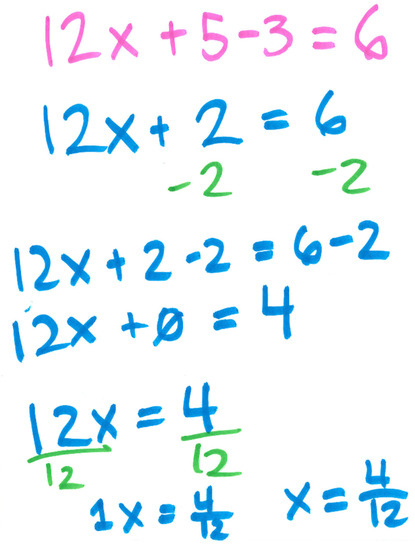 12x + 5 - 3 = 6
12x + 2 = 6
-2 -2
12x + 2 - 2 = 6 - 2
12x + 0 = 4
12x = 4
12 12
1x = 4/12 x = 4/12